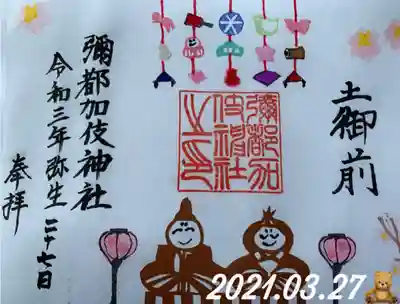 土御前
彌都加伎神社
令和三年弥生二十七日
奉拝
彌都加
伎神社
之印
2021.03.27